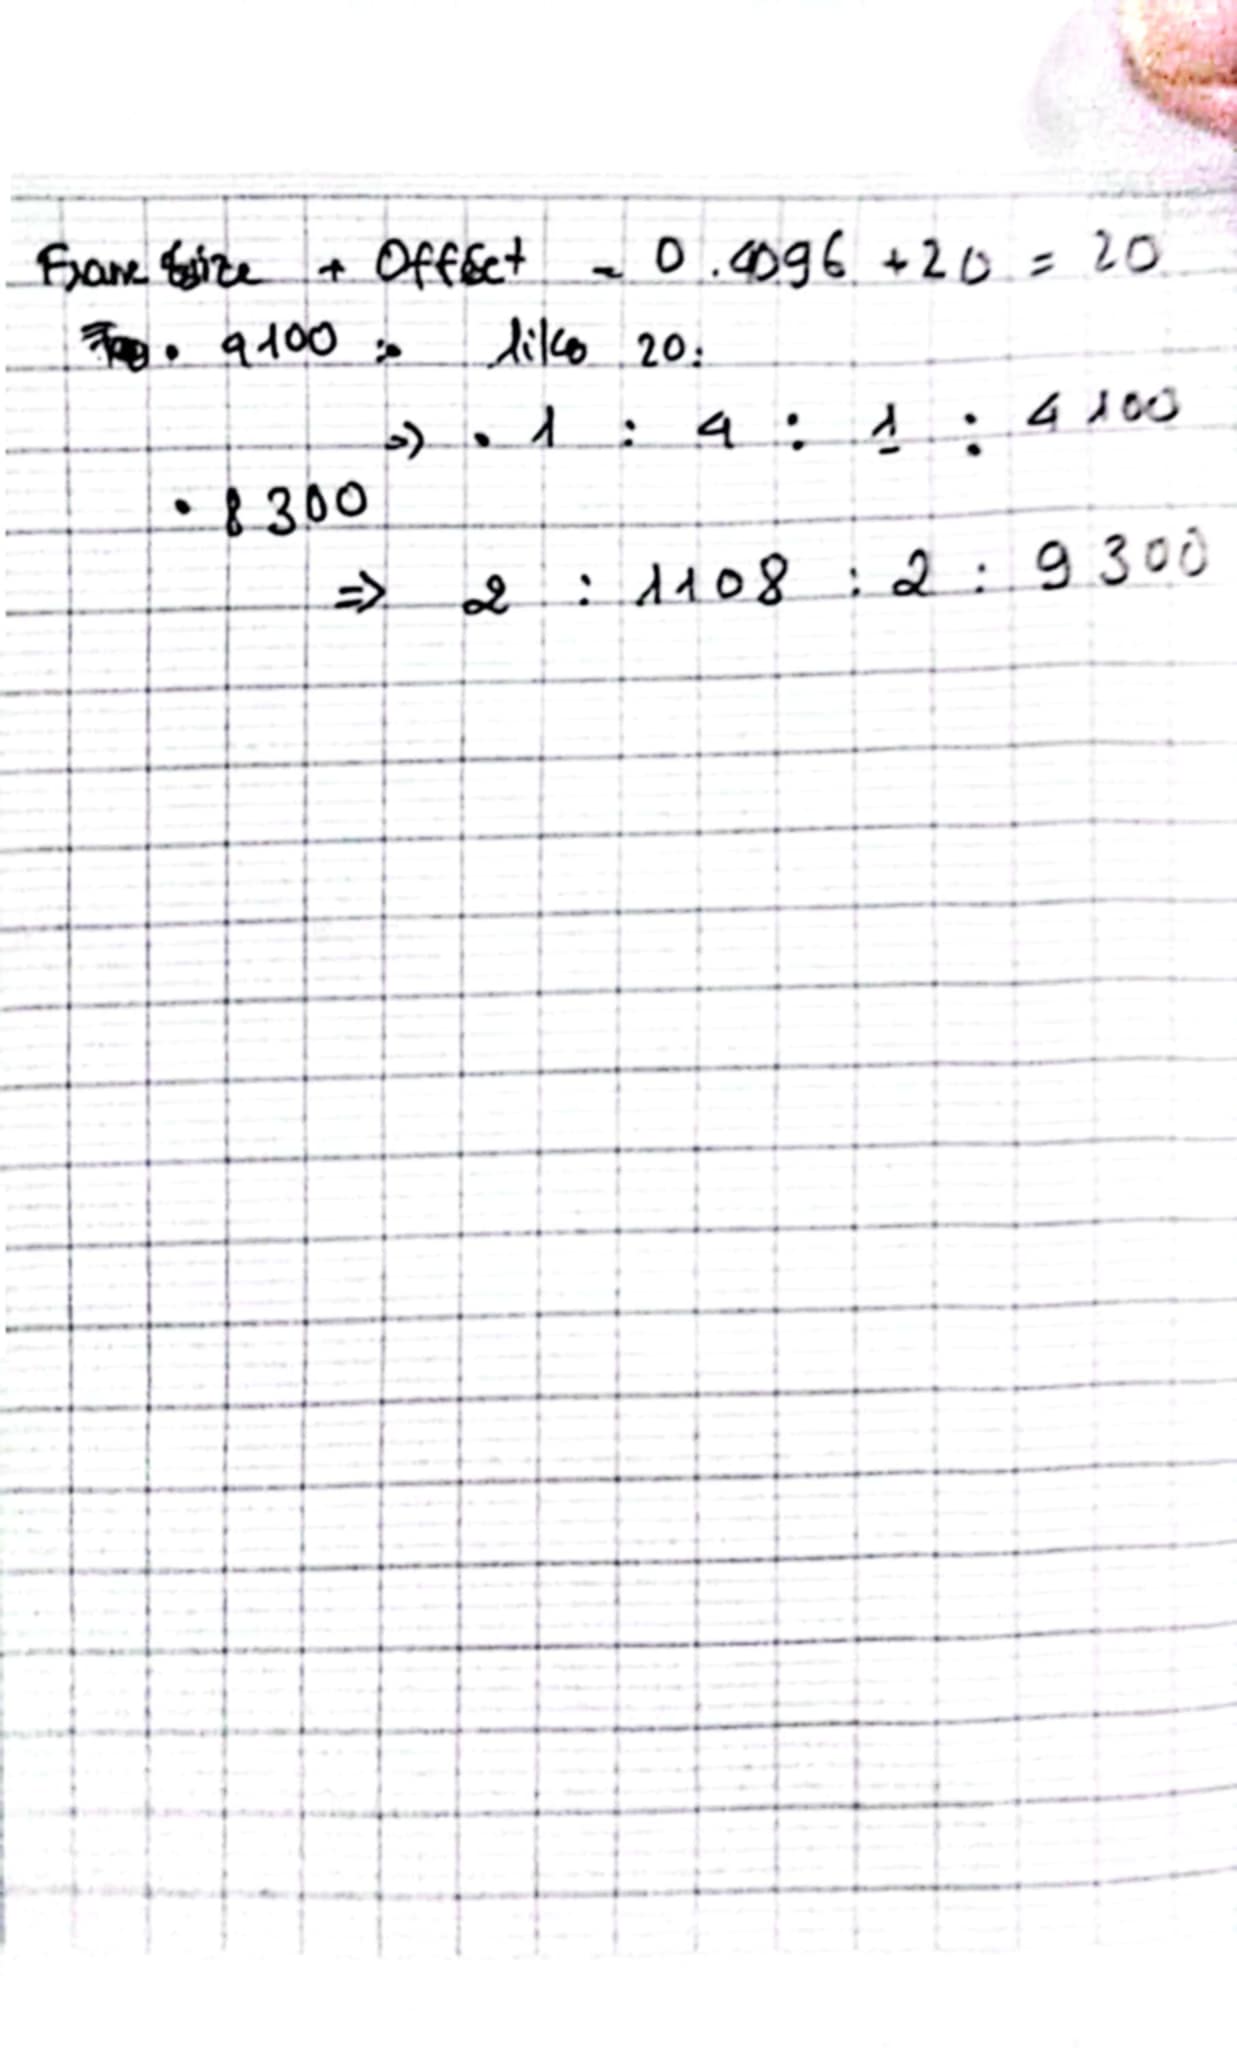 Frame size + Offset = 0.4096 + 20 = 20
• 4100 : like 20:
⇒ • 1 : 4 : 1 : 4100
• 8300
⇒ 2 : 1108 : 2 : 9300